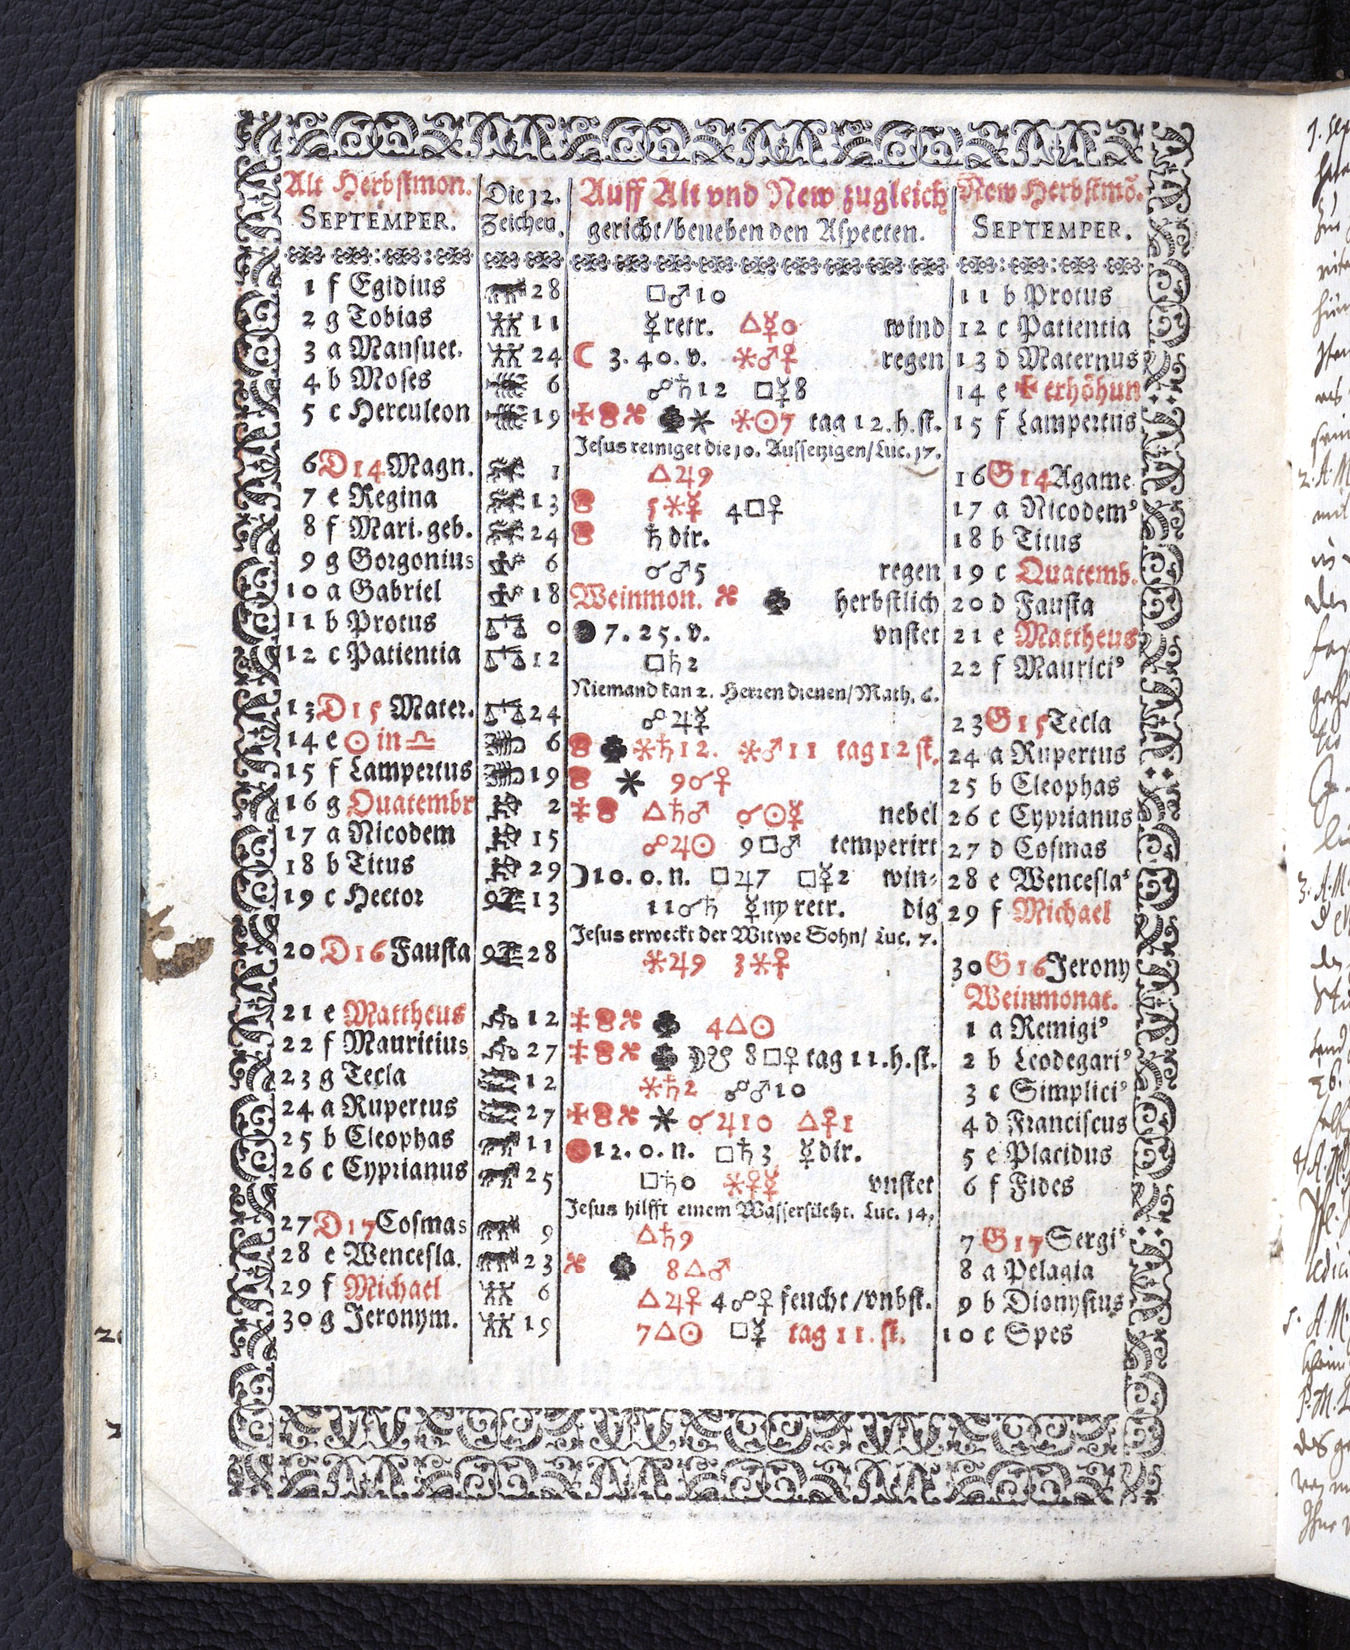 Alt Herbstmon. Die 12. Auff Alt vnd New zugleich New Herbstmõ.
SEPTEMPER. Zeichen. gericht/beneben den Aspecten. SEPTEMPER.
1 f Egidius 28 □♂10 11 b Protus
2 g Tobias 11 ☿retr. △☿0 wind 12 c Patientia
3 a Mansuet. 24 ☾ 3.40.v. ⚹♂♀ regen 13 d Maternus
4 b Moses 6 ☍♄12 □☿8 14 e ✠ erhõhun
5 c Herculeon 19 ⚹ ⚹☉7 tag 12.h.st. 15 f Lampertus
Jesus reiniget die 10. Aussetzigen/Luc. 17.
6 D14 Magn. 1 △♃9 16 G14 Agame
7 e Regina 13 5⚹☿ 4□♀ 17 a Nicodem⁹
8 f Mari.geb. 24 ♄ dir. 18 b Titus
9 g Gorgonius 6 ☌♂5 regen 19 c Quatemb.
10 a Gabriel 18 Weinmon. herbstlich 20 d Fausta
11 b Protus 0 ●7.25.v. vnstet 21 e Mattheus
12 c Patientia 12 □♄2 22 f Maurici⁹
Niemand kan 2. Herren dienen/Math. 6.
13 D15 Mater. 24 ☍♃☿ 23 G15 Tecla
14 e ☉ in ♎ 6 ⚹♄12. ⚹♂11 tag 12 st. 24 a Rupertus
15 f Lampertus 19 ⚹ 9☌♀ 25 b Cleophas
16 g Quatembr 2 △♄♂ ☌☉☿ nebel 26 c Cyprianus
17 a Nicodem 15 ☍♃☉ 9□♂ temperirt 27 d Cosmas
18 b Titus 29 ☽10.0.n. □♃7 □☿2 win⸗ 28 e Wencesla⁹
19 c Hector 13 11☌♄ ☿♍retr. dig 29 f Michael
Jesus erweckt der Witwe Sohn/ Luc. 7.
20 D16 Fausta 28 ⚹♃9 3⚹♀ 30 G16 Jerony
Weinmonat.
21 e Mattheus 12 4△☉ 1 a Remigi⁹
22 f Mauritius 27 8□♀ tag 11.h.st. 2 b Leodegari⁹
23 g Tecla 12 ⚹♄2 ☍♂10 3 c Simplici⁹
24 a Rupertus 27 ⚹ ☌♃10 △♀1 4 d Franciscus
25 b Cleophas 11 ●12.0.n. □♄3 ☿dir. 5 e Placidus
26 c Cyprianus 25 □♄0 ⚹♀☿ vnstet 6 f Fides
Jesus hilfft einem Wassersücht. Luc. 14,
27 D17 Cosmas 9 △♄9 7 G17 Sergi⁹
28 e Wencesla. 23 8△♂ 8 a Pelagia
29 f Michael 6 △♃♀ 4☍♀ feucht/vnbst. 9 b Dionysius
30 g Jeronym. 19 7△☉ □☿ tag 11. st. 10 c Spes